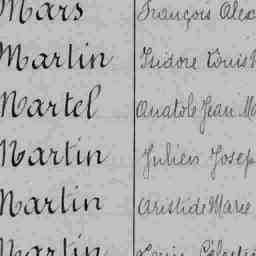 Mars François Alex
Martin Isidore Louis
Martel Anatole Jean Ma
Martin Julien Josep
Martin Aristide Marie
Martin Louis Célestin